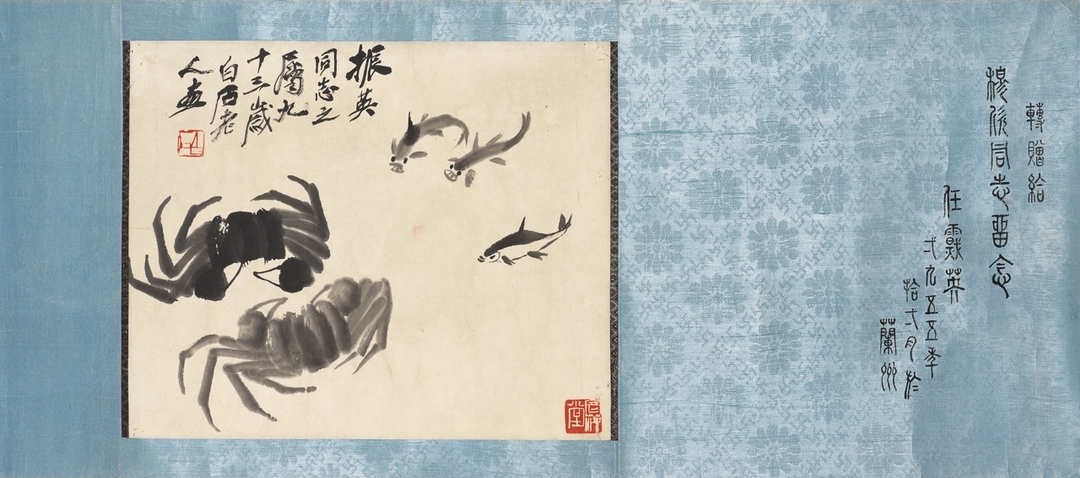 轉贈給
穆 同志畱念
任震英
弌九五五年
拾 月於
蘭州
振英
同志之
屬九
十三歲
白石老
人畫